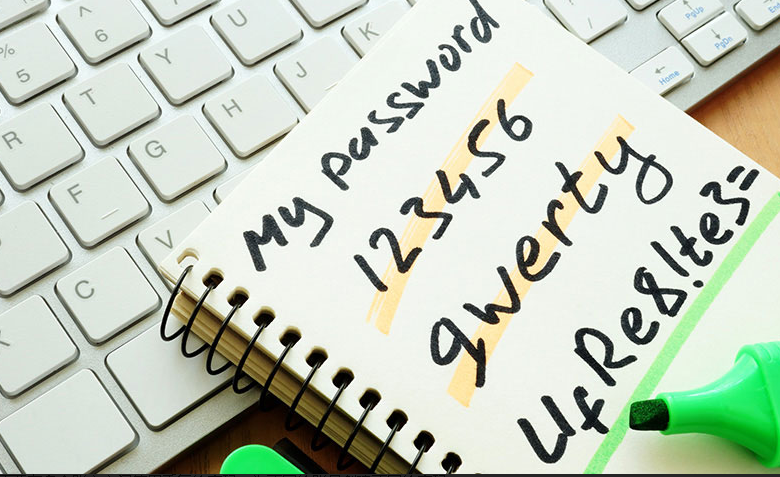 My password
123456
qwerty
UfRe8!te3=
% 5
^ 6
R T Y U
F G H J K
C V
PgUp
PgDn
Home